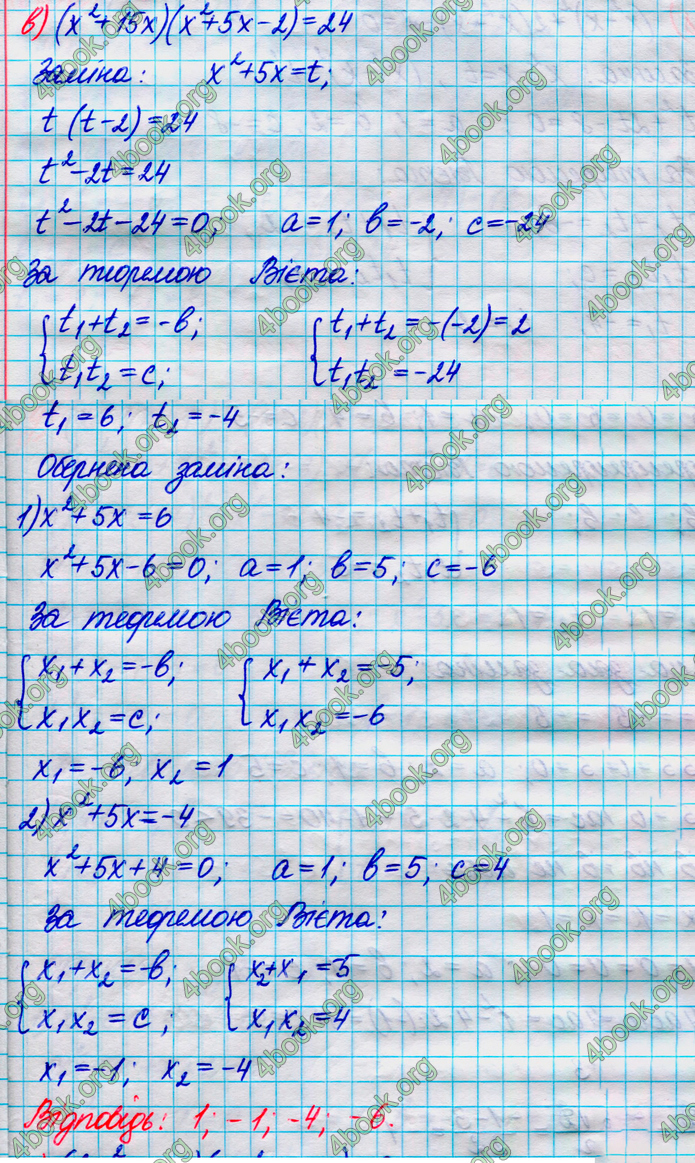 в) (x²+15x)(x²+5x-2)=24
Заміна: x²+5x=t;
t(t-2)=24
t²-2t=24
t²-2t-24=0; a=1; b=-2; c=-24
За теоремою Вієта:
{t₁+t₂=-b; {t₁+t₂=-(-2)=2
{t₁t₂=c; {t₁t₂=-24
t₁=6; t₂=-4
Обернена заміна:
1) x²+5x=6
x²+5x-6=0; a=1; b=5; c=-6
За теоремою Вієта:
{x₁+x₂=-b; {x₁+x₂=-5;
{x₁x₂=c; {x₁x₂=-6
x₁=-6; x₂=1
2) x²+5x=-4
x²+5x+4=0; a=1; b=5; c=4
За теоремою Вієта:
{x₁+x₂=-b; {x₂+x₁=5
{x₁x₂=c; {x₁x₂=4
x₁=-1; x₂=-4
Відповідь: 1; -1; -4; -6.
4book.org